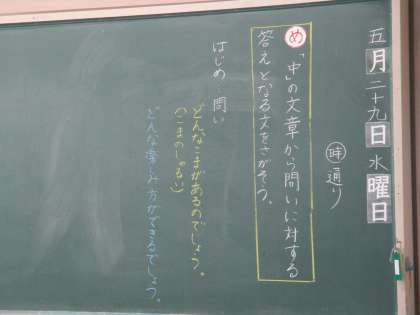 五月二十九日水曜日
時通り
め「中」の文章から問いに対する
答えとなる文をさがそう。
はじめ…問い
どんなこまがあるのでしょう。
(こまのしゅるい)
どんな楽しみ方ができるでしょう。